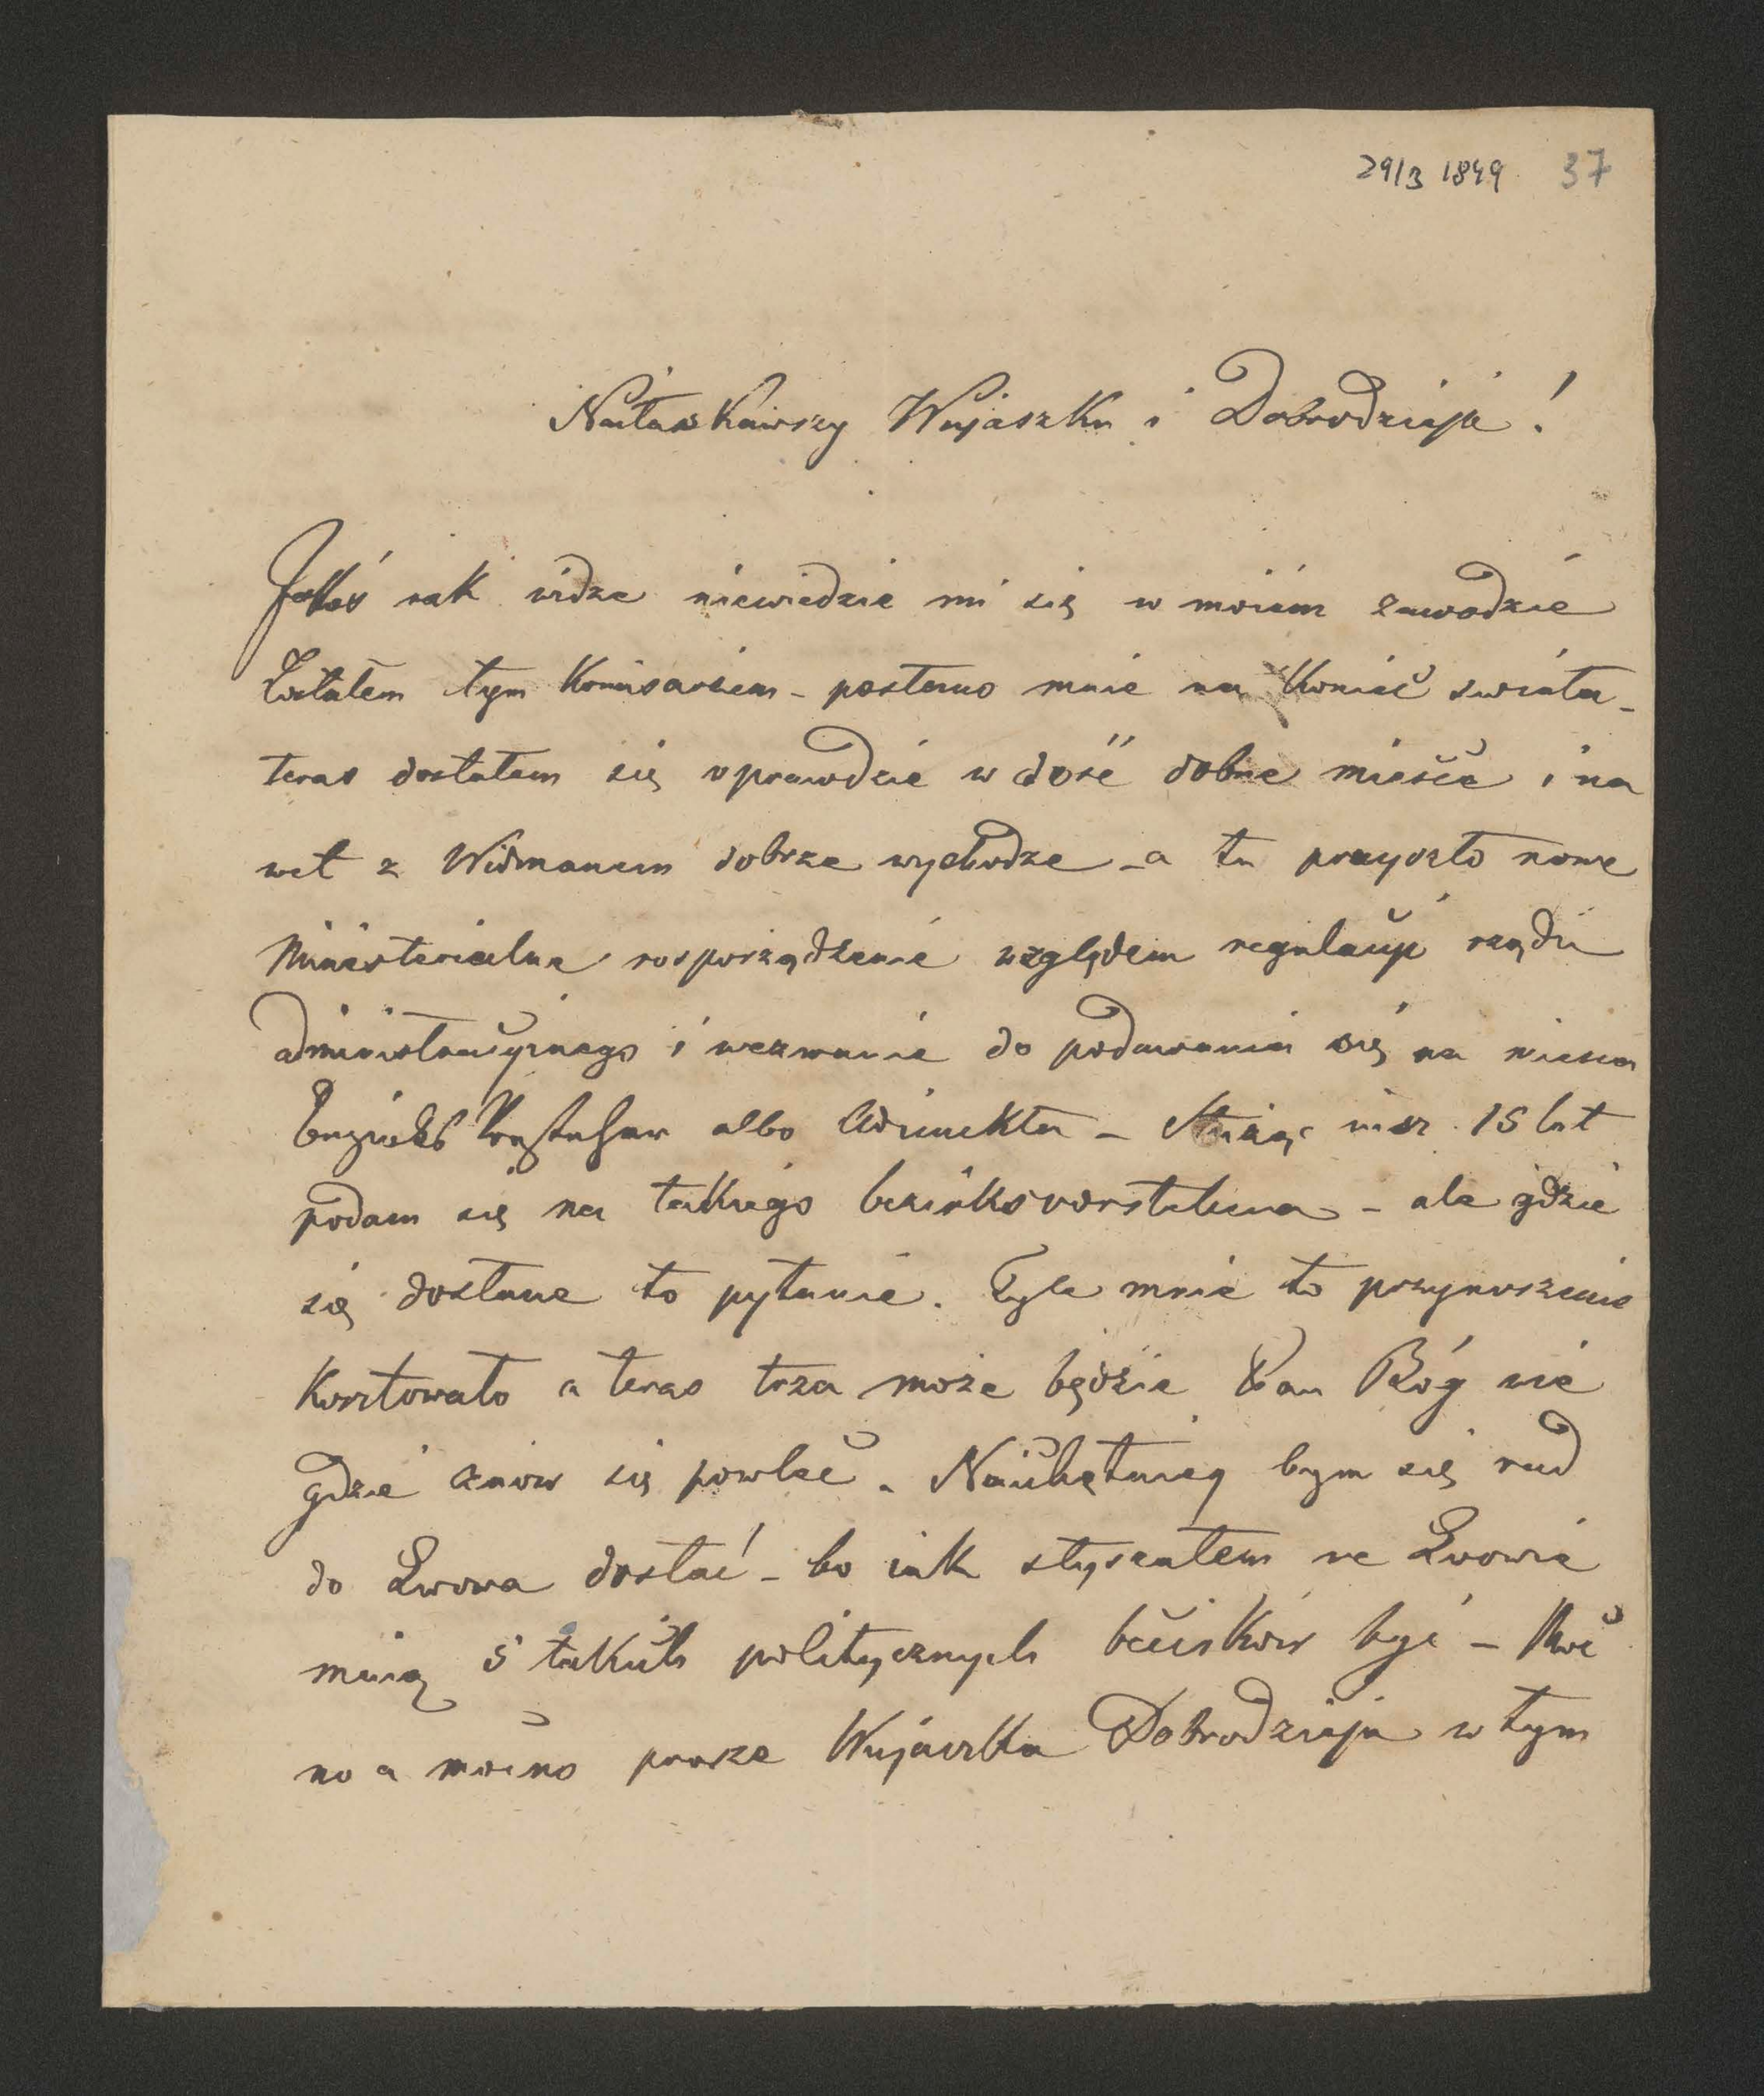 29/3 1849 37
Nałaskawszy Wujaszku i Dobrodzieju!
Jakoś iak widze niewiedzie mi się w moiem zawodzie
Zostałem tym Komisarzem – posłano mnie na koniec swiata –
teras dostałem się wprawdzie w dość dobre miesce i na
wet z Widmanem dobrze wychodze – a tu przyszło nowe
Ministerialne rosporządzenie względem regulacji rządu
administracyjnego i wezwanie do podawania się na miesca
Bezirks Vorsteher albo Adiunkta – Służąc już 15 lat
podam się na takiego bezirksvorstehera – ale gdzie
się dostane to pytanie. Tyle mnie to przynoszenie
kosztowało a teras trza może będzie Pan Bóg wie
gdzie znow się powlec. Nauchętniey bym się rad
do Lwowa dostać – bo iak słyszałem we Lwowie
maią 5 takich politycznych bezirków być – Moc
no a mocno prosze Wujaszka Dobrodzieja w tym